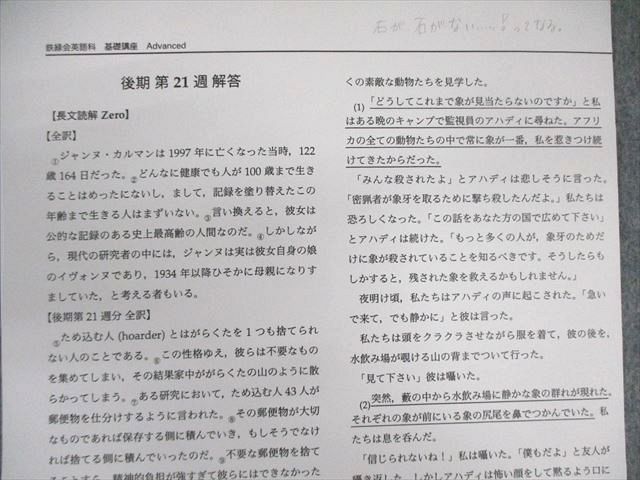 鉄緑会英語科 基礎講座 Advanced
石が 石がない……！ってなる。
後期 第 21 週 解答
【長文読解 Zero】
【全訳】
①ジャンヌ・カルマンは 1997 年に亡くなった当時，122
歳 164 日だった。②どんなに健康でも人が 100 歳まで生き
ることはめったにないし，まして，記録を塗り替えたこの
年齢まで生きる人はまずいない。③言い換えると，彼女は
公的な記録のある史上最高齢の人間なのだ。④しかしなが
ら，現代の研究者の中には，ジャンヌは実は彼女自身の娘
のイヴォンヌであり，1934 年以降ひそかに母親になりす
ましていた，と考える者もいる。
【後期第 21 週分 全訳】
⑤ため込む人 (hoarder) とはがらくたを 1 つも捨てられ
ない人のことである。⑥この性格ゆえ，彼らは不要なもの
を集めてしまい，その結果家中ががらくたの山のように散
らかってしまう。⑦ある研究において，ため込む人 43 人が
郵便物を仕分けするように言われた。⑧その郵便物が大切
なものであれば保存する側に積んでいき，もしそうでなけ
れば捨てる側に積んでいったのだ。⑨不要な郵便物を捨て
ることすら，精神的負担が強すぎて彼らにはできなかった
くの素敵な動物たちを見学した。
(1)「どうしてこれまで象が見当たらないのですか」と私
はある晩のキャンプで監視員のアハディに尋ねた。アフリ
カの全ての動物たちの中で常に象が一番，私を惹きつけ続
けてきたからだった。
「みんな殺されたよ」とアハディは悲しそうに言った。
「密猟者が象牙を取るために撃ち殺したんだよ。」私たちは
恐ろしくなった。「この話をあなた方の国で広めて下さい」
とアハディは続けた。「もっと多くの人が，象牙のためだ
けに象が殺されていることを知るべきです。そうしたらも
しかすると，残された象を救えるかもしれません。」
夜明け頃，私たちはアハディの声に起こされた。「急い
で来て，でも静かに」と彼は言った。
私たちは頭をクラクラさせながら服を着て，彼の後を，
水飲み場が覗ける山の背までついて行った。
「見て下さい」彼は囁いた。
(2)突然，藪の中から水飲み場に静かな象の群れが現れた。
それぞれの象が前にいる象の尻尾を鼻でつかんでいた。私
たちは息を呑んだ。
「信じられないね！」私は囁いた。「僕もだよ」と友人が
囁き返した。しかしアハディは怖い顔をして黙るよう口に